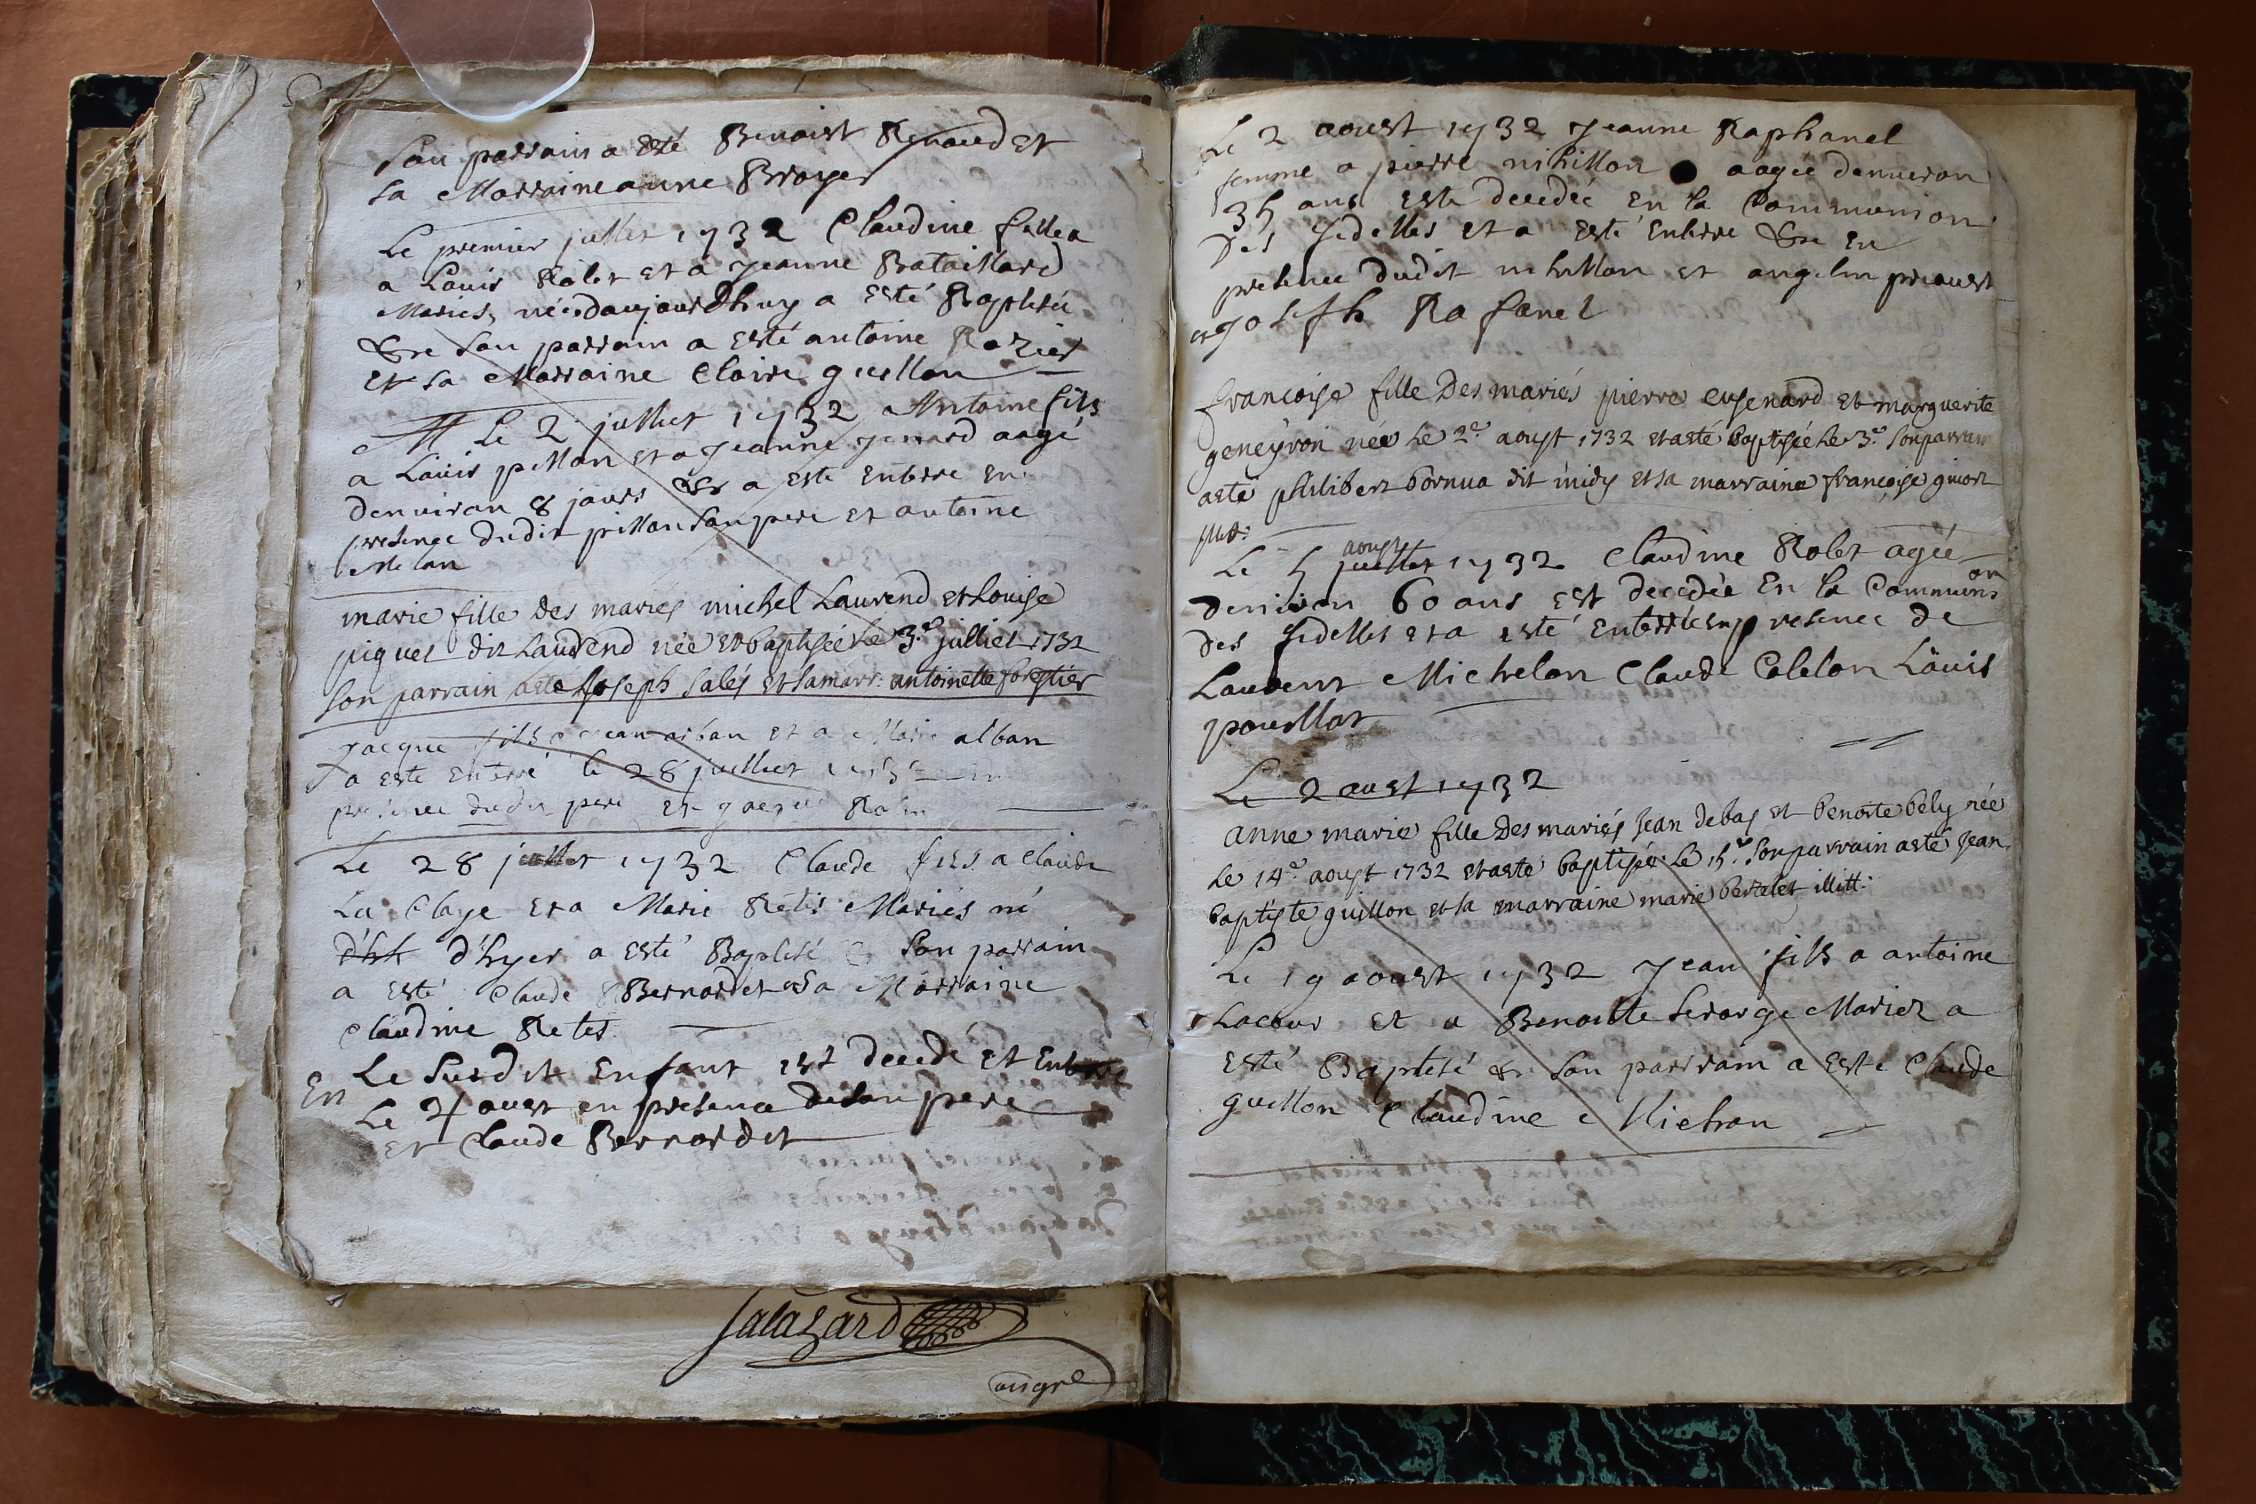 son parrain a Esté Benoist Renaud Et
sa Marraine anne Broyer
Le premier juillet 1732 Claudine fille a
a Louis Rolet et a Jeanne Bataillard
Mariés, née daujourdhuy a esté Baptisée
&re son parrain a esté antoine Rozier
et sa Marraine Claire guillon
Le 2 juillet 1732 Antoine fils
a Loüis pillon et a Jeanne Jenard aagé
denviron 8 jours &r a este enterré en
presence dudit pillon son pere et antoine
marie fille des mariés michel Laurend et Louise
piquet dit Laurend née et baptisée le 3.e julliet 1732
son parrain aeté Joseph salés et sa marr: antoinette forestier
Jacque fils a Jean alban et a Marie alban
a esté enterré le 28 juillet 1732 en
presence dudit pere et
Le 28 juillet 1732 Claude fils a Claude
La Claye et a Marie Retis Mariés né
d'hyer a esté Baptisé & son parrain
a esté Claude Bernardet et sa Marraine
Claudine Retis
Le susdit Enfant est decedé et Enterré
En
Le 4 aust en presence de son pere
et Claude Bernardet
salazard
congre
Le 2 aoust 1732 Jeanne Raphanel
femme a pierre nihillon aagée denviron
35 ans este decedée En la Communion
Des fidelles et a esté Enterré &re En
presence dudit nihillon et angelin preaust
et Joseph Rafanel
françoise fille des mariés pierre eugenard et marguerite
geneyron née le 2.e aoust 1732 et aeté baptisée le 3.e son parrain
aeté philibert bornua dit midy et sa marraine françoise guiot
Le 5 aoust juillet 1732 Claudine Rolet agée
denviron 60 ans est decedée En la Communion
des fidelles et a esté enterrée en presence de
Laurent Michelon Claude Colelon Loüis
pouillat
Le 2 aust 1732
anne marie fille des mariés Jean debas et benoite bely née
le 14.e aoust 1732 et aeté baptisée le 15.e son parrain aeté Jean
baptiste guillon et sa marraine marie bertelet illitt:
Le 19 aoust 1732 Jean fils a antoine
Lacour et a Benoiste Serorge Mariez a
esté Baptisé &r son parrain a este Claude
guillon Claudine Michon